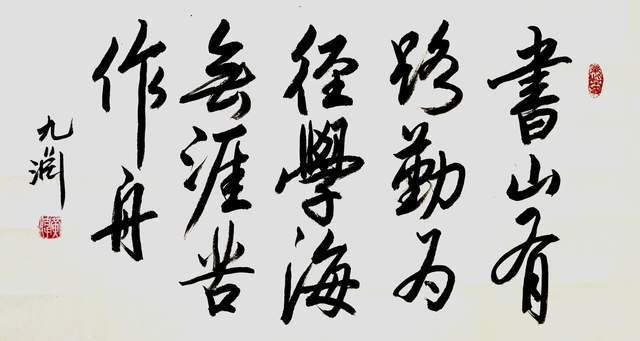 書山有
路勤為
徑學海
無涯苦
作舟
九淵